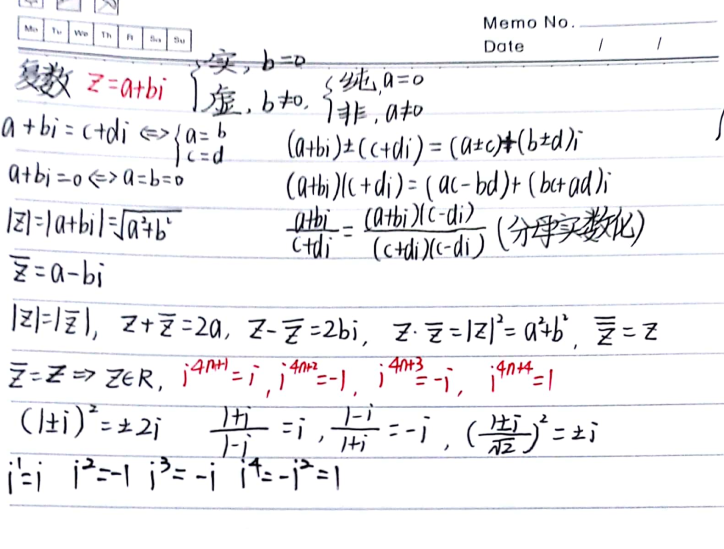 Memo No.
Mo Tu We Th Fr Sa Su
Date / /
复数 z=a+bi {实, b=0 虚, b≠0, {纯, a=0 非, a≠0
a+bi=c+di⇔{a=b c=d (a+bi)±(c+di)=(a±c)+(b±d)i
a+bi=0⇔a=b=0 (a+bi)(c+di)=(ac-bd)+(bc+ad)i
|z|=|a+bi|=√(a²+b²) (a+bi)/(c+di)=(a+bi)(c-di)/(c+di)(c-di) (分母实数化)
z̅=a-bi
|z|=|z̅|, z+z̅=2a, z-z̅=2bi, z·z̅=|z|²=a²+b², z̿=z
z̅=z⇒z∈R, i⁴ⁿ⁺¹=i, i⁴ⁿ⁺²=-1, i⁴ⁿ⁺³=-i, i⁴ⁿ⁺⁴=1
(1±i)²=±2i (1+i)/(1-i)=i, (1-i)/(1+i)=-i, ((1±i)/√2)²=±i
i¹=i i²=-1 i³=-i i⁴=-i²=1